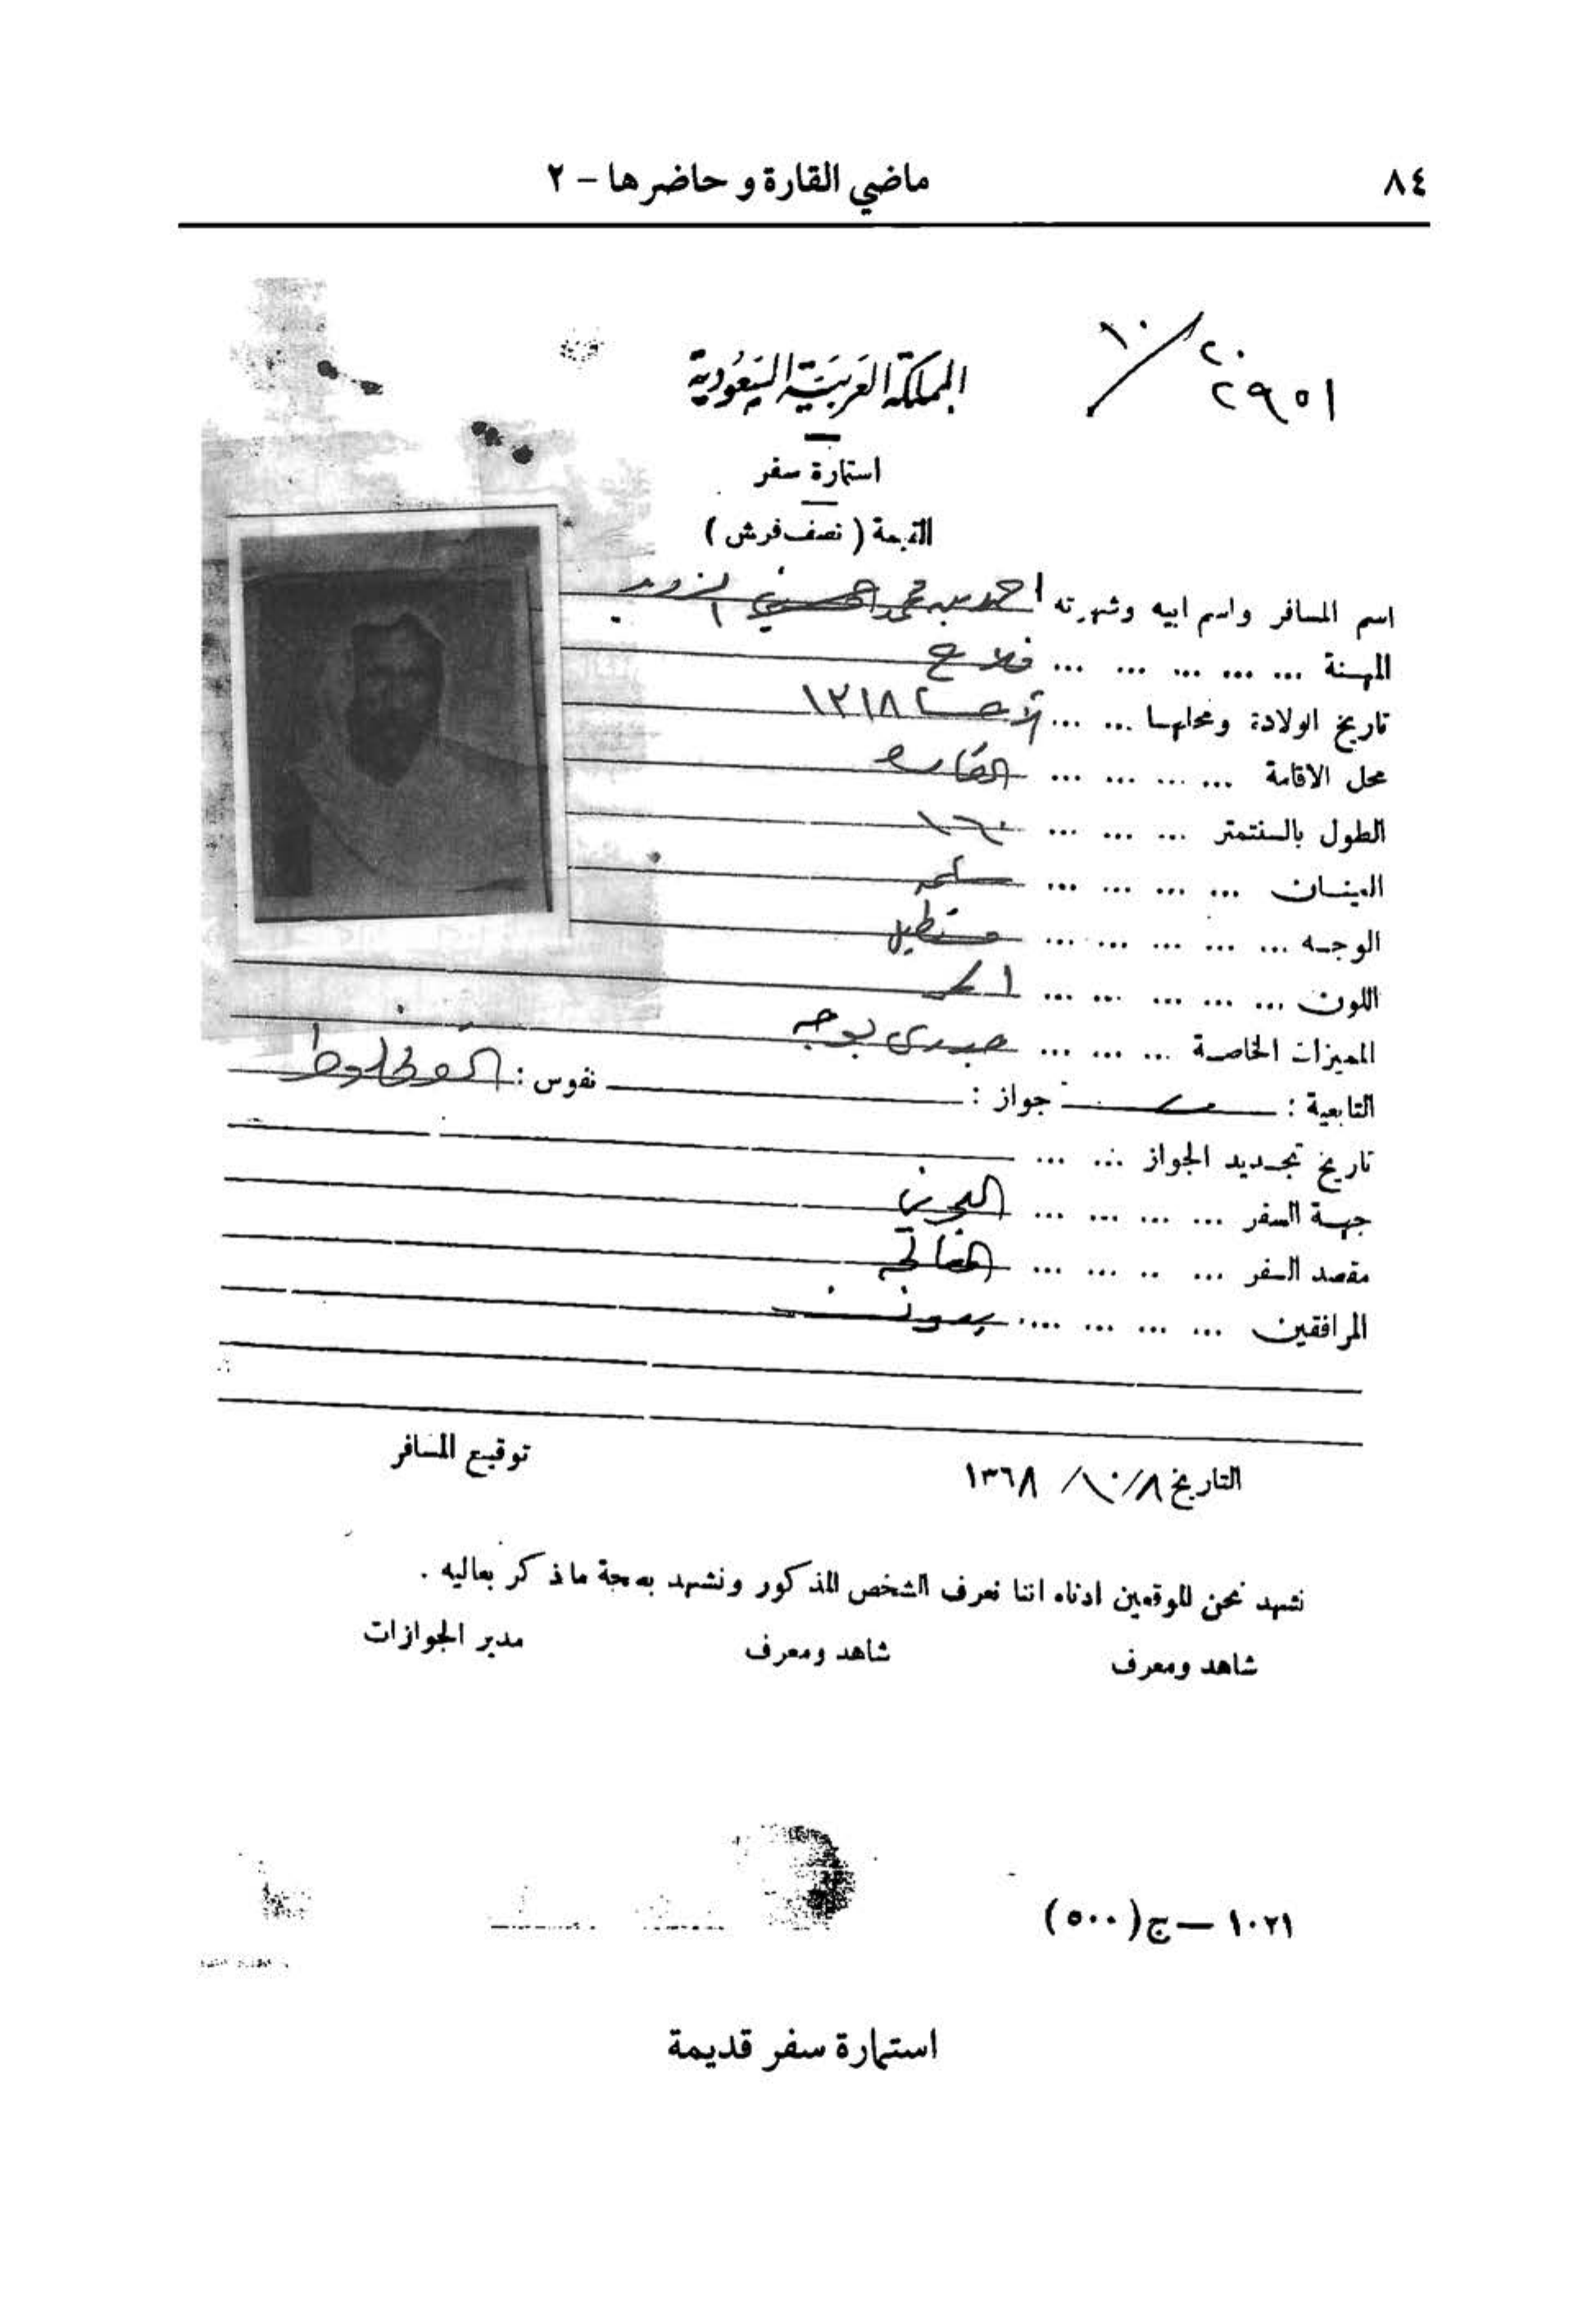 ٨٤
ماضي القارة و حاضرها - ٢
١٠/٢٠
٢٩٥١
المملكة العربية السعودية
استمارة سفر
القيمة ( نصف قرش )
اسم المسافر واسم ابيه وشهرته احمد بن محمد
المهنة ... ... ... ... ... فلاح
تاريخ الولادة ومحلها ... ... الاحسا ١٣١٨
محل الاقامة ... ... ... ... القاره
الطول بالسنتمتر ... ... ... ١٦٠
العينان ... ... ... ... سليمه
الوجه ... ... ... ... ... مستطيل
اللون ... ... ... ... ...
المميزات الخاصة ... ... ... جدري بوجهه
التابعية : جواز : نفوس :
تاريخ تجديد الجواز ... ...
جهة السفر ... ... ... ... البحرين
مقصد السفر ... ... ... ...
المرافقين ... ... ... ... بدون
التاريخ ٨/ ١٠/ ١٣٦٨
توقيع المسافر
نشهد نحن الموقعين ادناه اننا نعرف الشخص المذكور ونشهد بصحة ماذكر بعاليه .
شاهد ومعرف شاهد ومعرف مدير الجوازات
١٠٢١ — ج (٥٠٠)
استمارة سفر قديمة